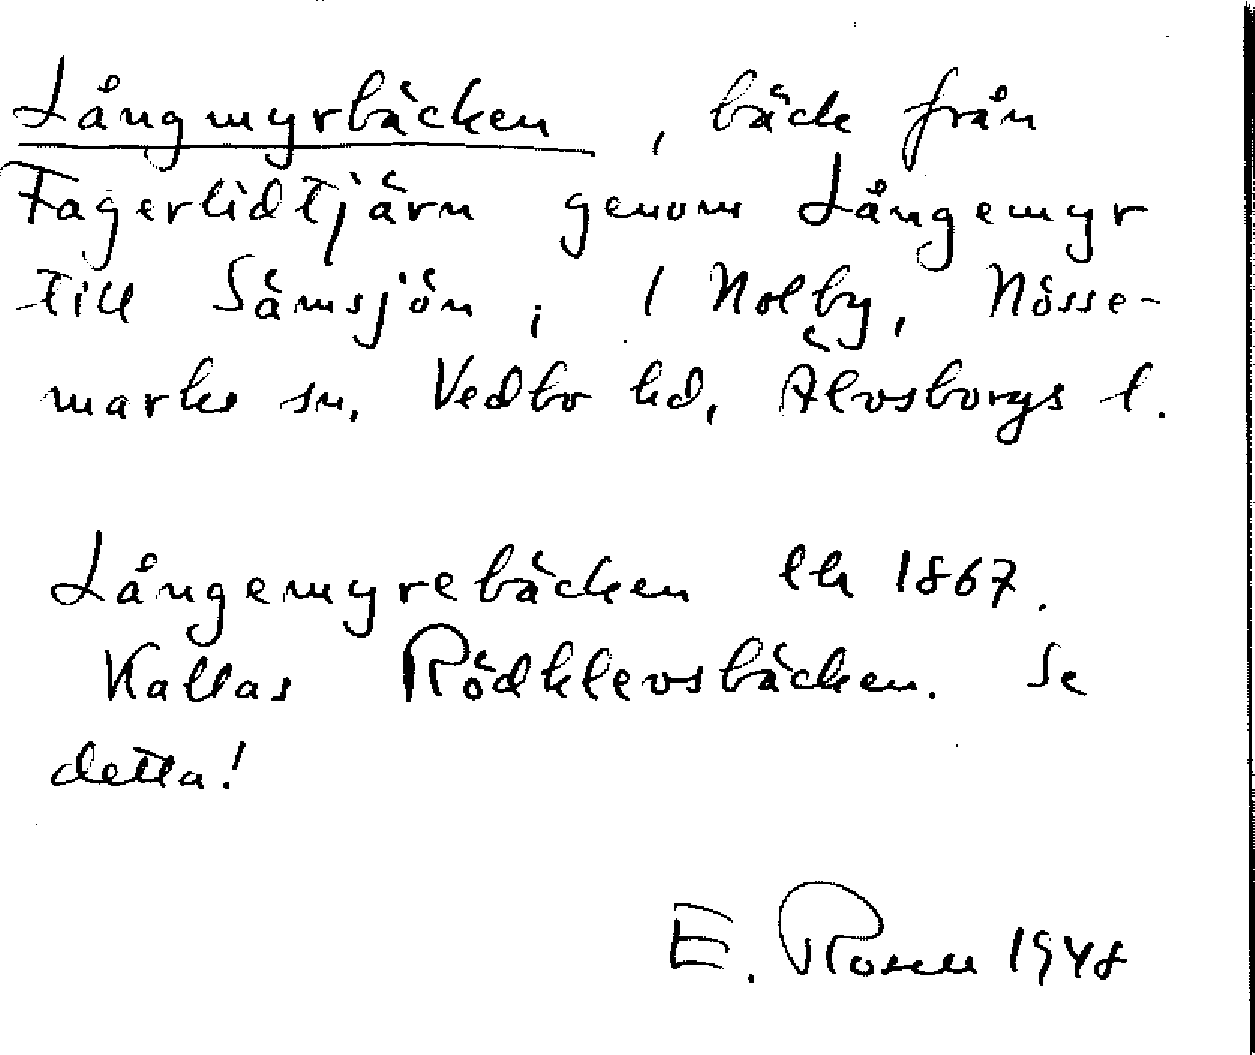 Långmyrbäcken, bäck från
Fagerlidtjärn genom Långemyr
till Sämsjön, i Nolby, Nösse-
marks sn, Vedbo hd, Älvsborgs l.
Långemyrebäcken lh 1867.
Kallas Rödklevsbäcken. Se
detta!
E. Rosell 1948